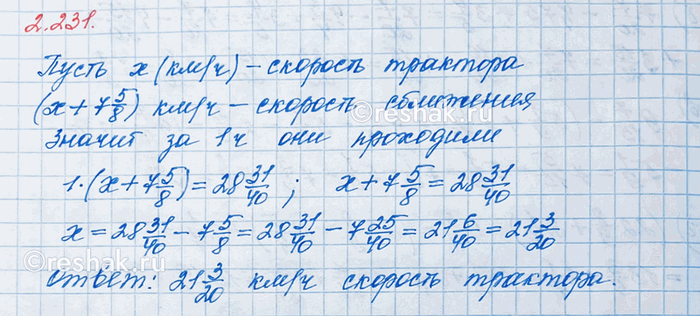 2.231.
Пусть x (км/ч) – скорость трактора
(x + 7 5/8) км/ч – скорость сближения
Значит за 1 ч они проходили
1·(x + 7 5/8) = 28 31/40 ; x + 7 5/8 = 28 31/40
x = 28 31/40 – 7 5/8 = 28 31/40 – 7 25/40 = 21 6/40 = 21 3/20
Ответ: 21 3/20 км/ч скорость трактора.
©reshak.ru
©reshak.ru